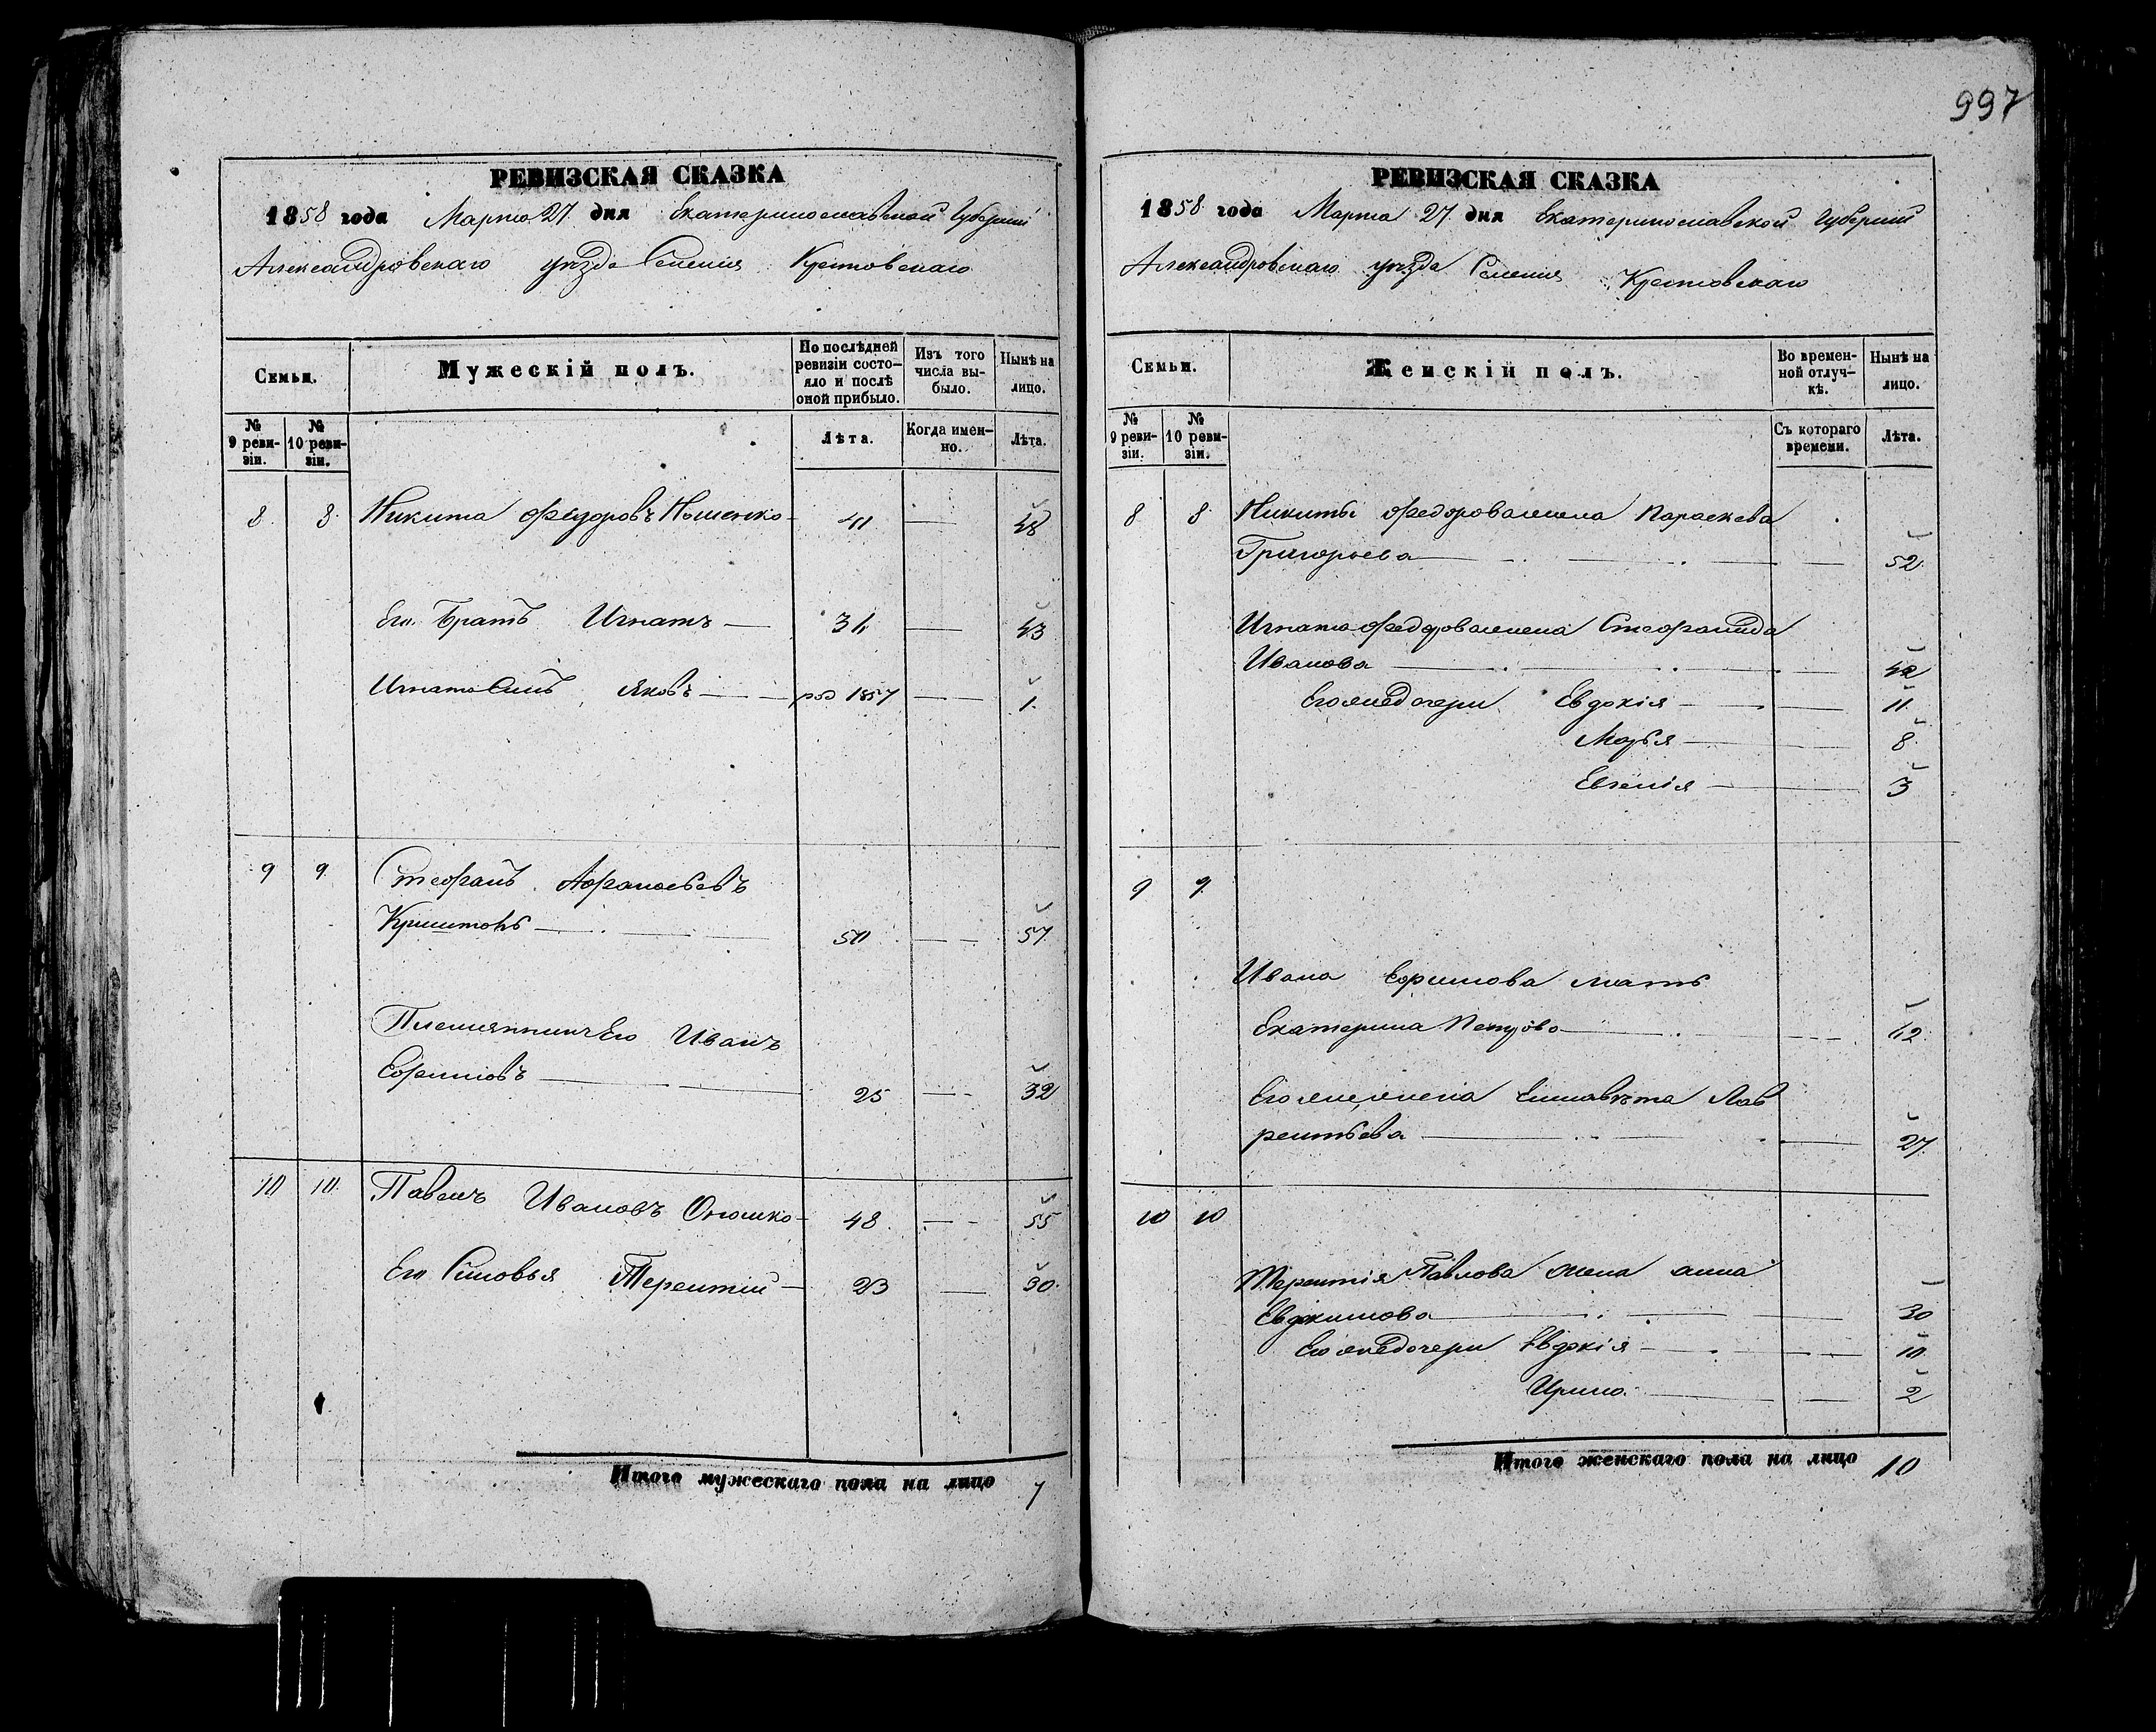 997
РЕВИЗСКАЯ СКАЗКА
1858 года Марта 27 дня Екатеринославской Губерніи
Александровскаго уѣзда Селенія Крестовскаго
Семьи.
Мужескій полъ.
По послѣдней ревизіи состо-
яло и послѣ оной прибыло.
Изъ того числа вы-
было.
Нынѣ на лицо.
№ 9 реви-
зіи.
№ 10 реви-
зіи.
Лѣта.
Когда имен-
но.
Лѣта.
8 8 Никита Федоровъ 41 — 48
Его Братъ Игнатъ — 36 — 43
Игната Сынъ Яковъ — род 1857 — 1
9 9 Стефанъ Афанасьевъ
50 — 57
Племянникъ Его Иванъ
Ефимовъ — 25 — 32
10 10 Павелъ Ивановъ 48 — 55
Его Сыновья Терентій — 23 — 30
Итого мужескаго пола на лицо 7
РЕВИЗСКАЯ СКАЗКА
1858 года Марта 27 дня Екатеринославской Губерніи
Александровскаго уѣзда Селенія Крестовскаго
Семьи.
Женскій полъ.
Во времен-
ной отлуч-
кѣ.
Нынѣ на лицо.
№ 9 реви-
зіи.
№ 10 реви-
зіи.
Съ котораго времени.
Лѣта.
8 8 Никиты Федорова жена Параскева
Григорьева — 52
Игната Федорова жена Стефанида
Иванова — 42
Его же дочери Евдокія — 11
Марья — 8
Евгенія — 3
9 9
Ивана Ефимова мать
Екатерина Петрова —
Его же жена Елисавѣта Лав
рентьева — 27
10 10
Терентія Павлова жена Анна
Евдокимова — 30
Его же дочери Евдокія — 10
Ирина — 2
Итого женскаго пола на лицо 10